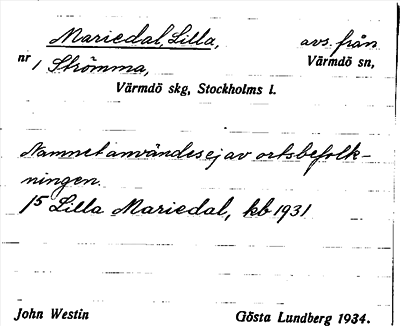 Mariedal, Lilla, avs. från
nr 1 Strömma, Värmdö sn,
Värmdö skg, Stockholms l.
Namnet användes ej av ortsbefolk-
ningen.
1/5 Lilla Mariedal, kb 1931
John Westin Gösta Lundberg 1934.